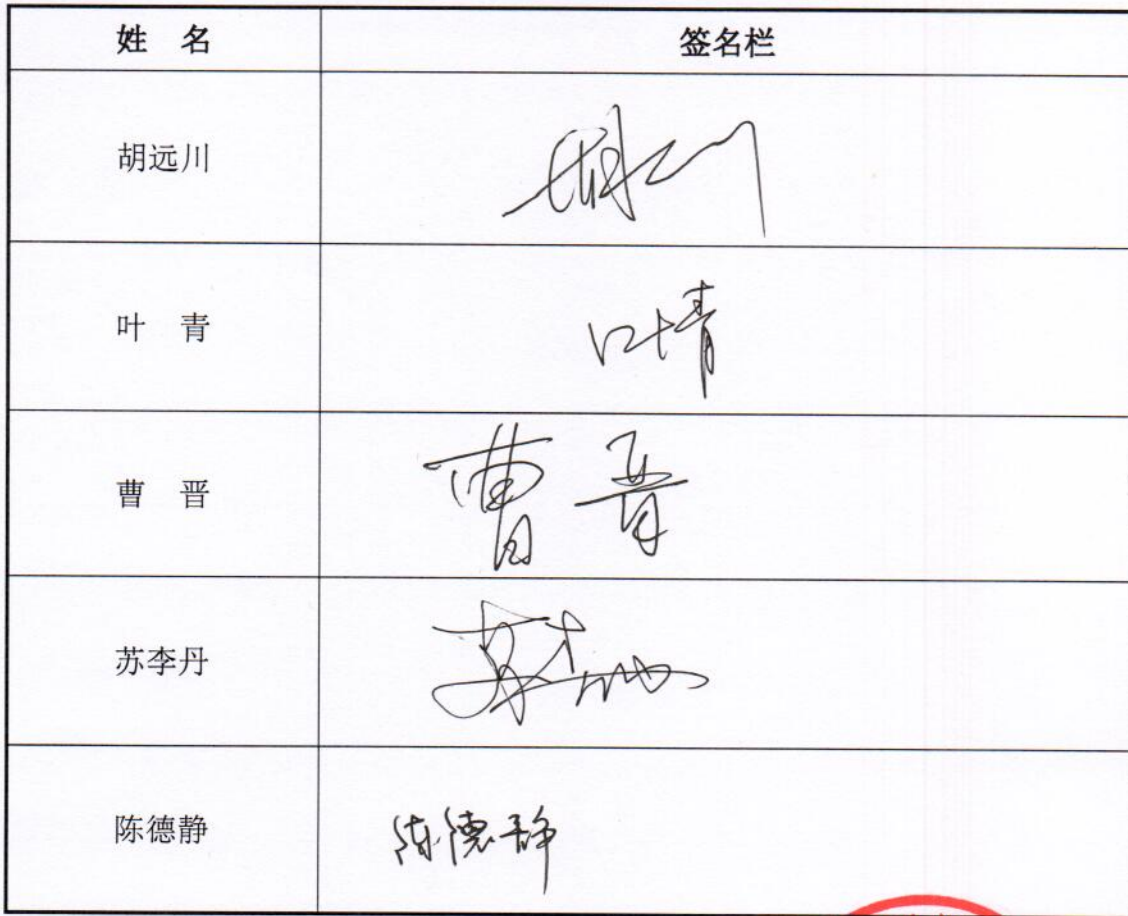 姓 名 签名栏
胡远川 胡远川
叶 青 叶青
曹 晋 曹晋
苏李丹 苏李丹
陈德静 陈德静